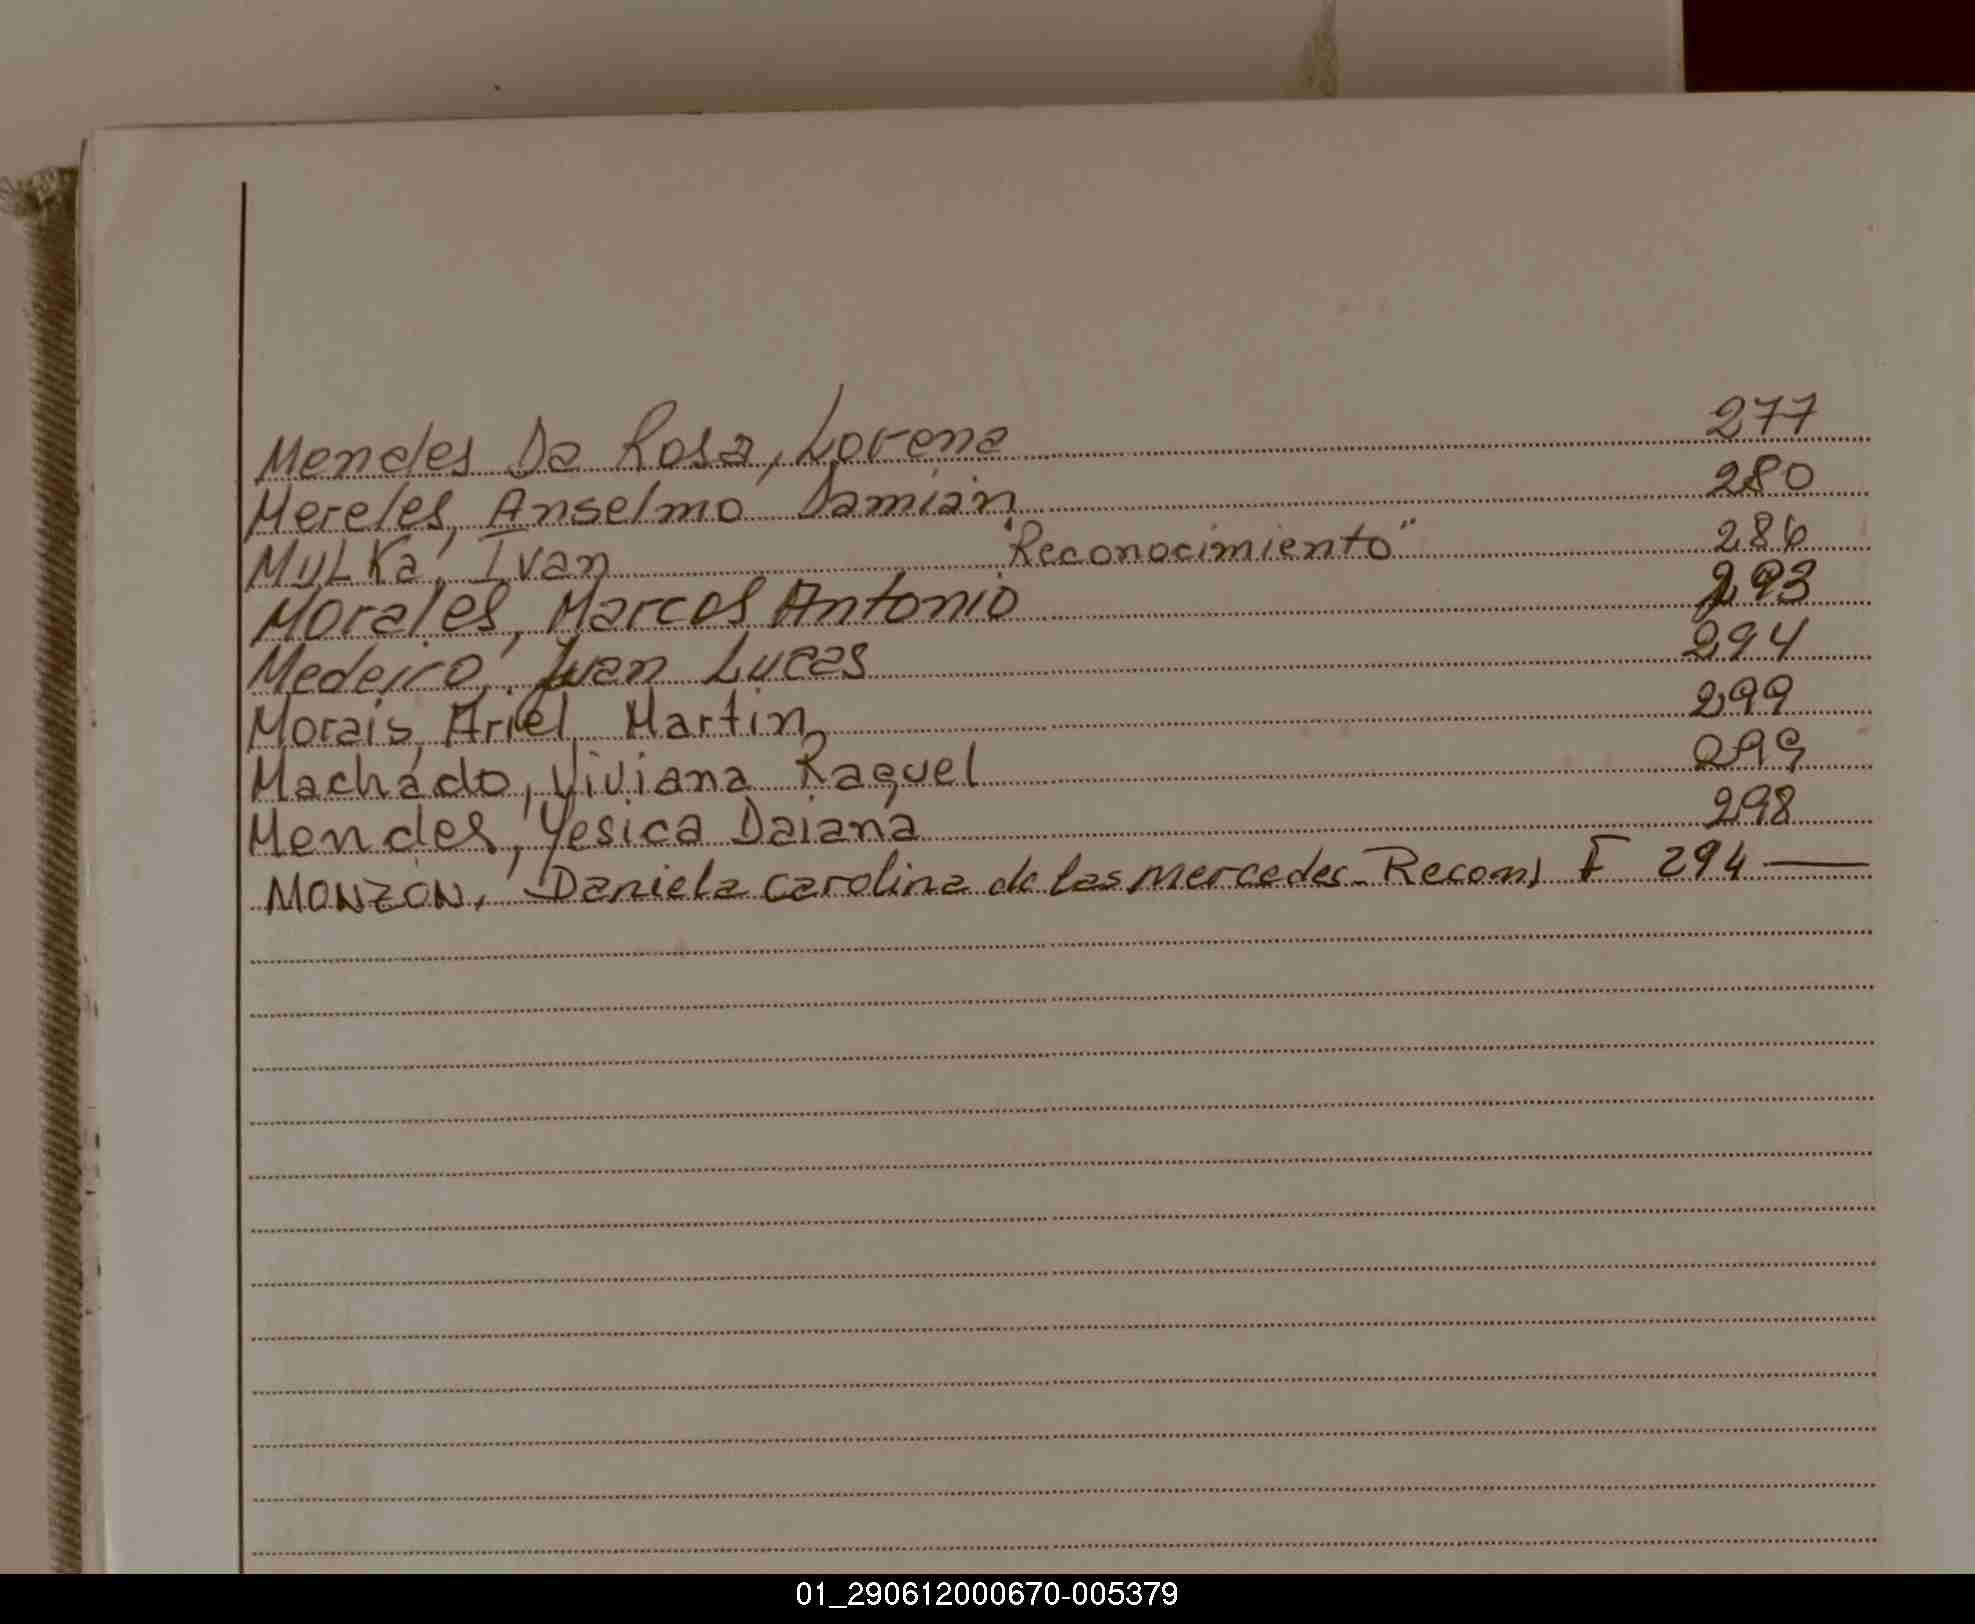 Mendes Da Rosa, Lorena 277
Mereles, Anselmo Damián 280
MyLKa, Ivan "Reconocimiento" 286
Morales, Marcos Antonio 293
Medeiro, Juan Lucas 294
Morais, Ariel Martin 299
Machado, Viviana Raquel 299
Mendes, Yesica Daiana 298
MONZON, Daniela Carolina de las Mercedes - Recon. F 294
01_290612000670-005379